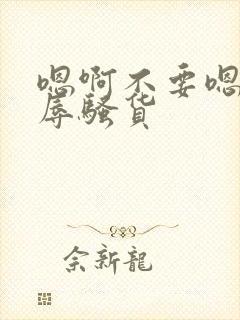 嗯啊不要嗯
辱骚货
余新龍